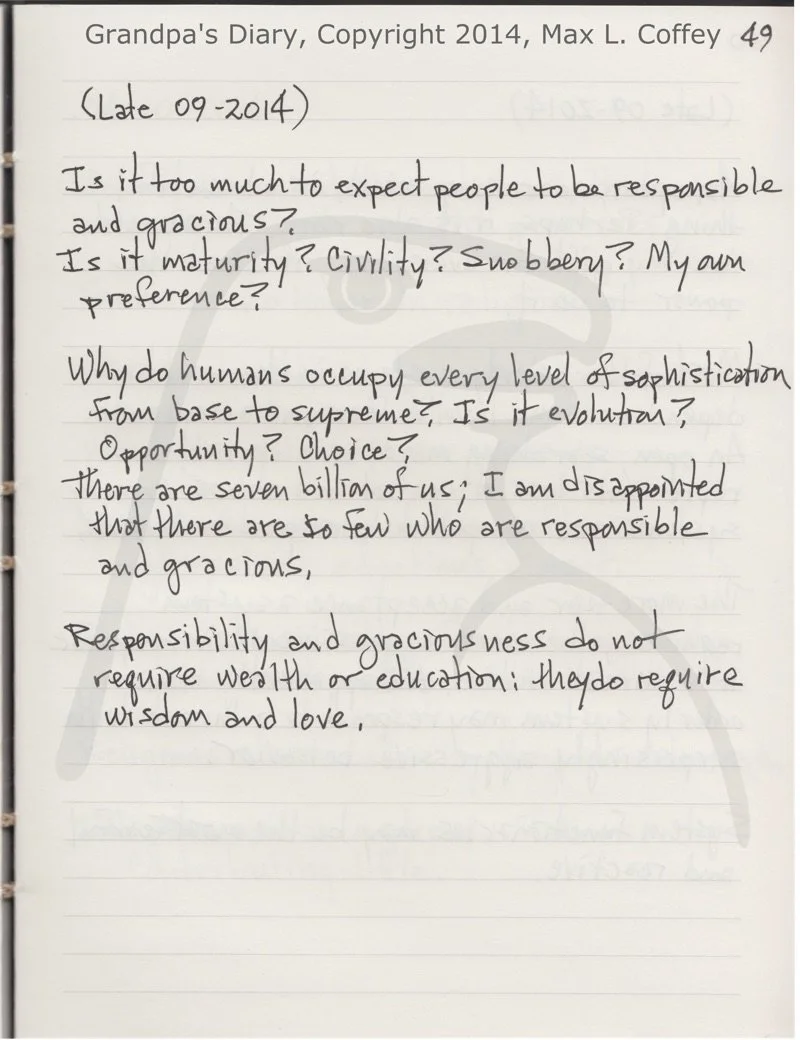 Grandpa's Diary, Copyright 2014, Max L. Coffey 49
(Late 09-2014)
Is it too much to expect people to be responsible
and gracious?
Is it maturity? Civility? Snobbery? My own
preference?
Why do humans occupy every level of sophistication
from base to supreme? Is it evolution?
Opportunity? Choice?
There are seven billion of us; I am disappointed
that there are so few who are responsible
and gracious.
Responsibility and graciousness do not
require wealth or education: they do require
wisdom and love.